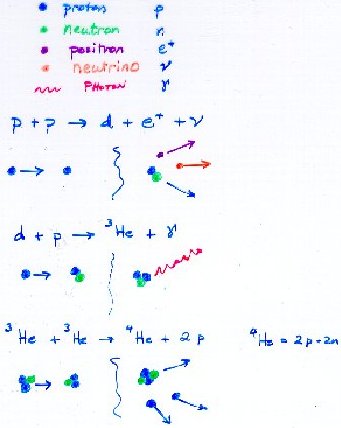 proton p
neutron n
positron e⁺
neutrino ν
PHOTON γ
p + p → d + e⁺ + ν
d + p → ³He + γ
³He + ³He → ⁴He + 2p
⁴He = 2p + 2n